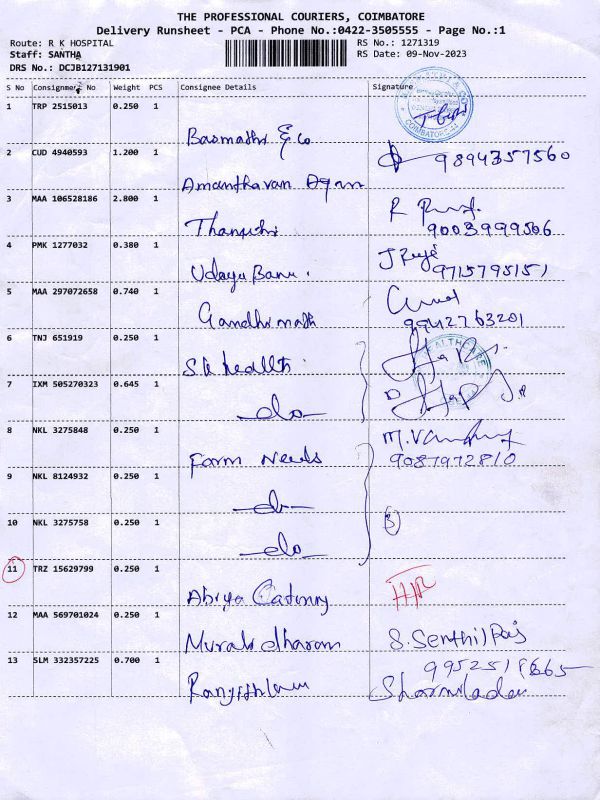 THE PROFESSIONAL COURIERS, COIMBATORE
Delivery Runsheet - PCA - Phone No.:0422-3505555 - Page No.:1
Route: R K HOSPITAL
RS No.: 1271319
Staff: SANTHA
RS Date: 09-Nov-2023
DRS No.: DCJB127131901
S No Consignment No Weight PCS Consignee Details Signature
1 TRP 2515013 0.250 1
COIMBATORE-44
& Co
2 CUD 4940593 1.200 1
9894357560
Amanthavan
3 MAA 106528186 2.800 1
R
9003999506
4 PMK 1277032 0.380 1
Udaya Banu.
9715795151
5 MAA 297072658 0.740 1
Gandhimath
9942763201
6 TNJ 651919 0.250 1
Sk health
7 IXM 505270323 0.645 1
do
8 NKL 3275848 0.250 1
Farm Needs
9087972810
9 NKL 8124932 0.250 1
do
10 NKL 3275758 0.250 1
3
do
11 TRZ 15629799 0.250 1
12 MAA 569701024 0.250 1
Muralidharan
S. Senthil Raj
13 SLM 332357225 0.700 1
Sharmiladevi